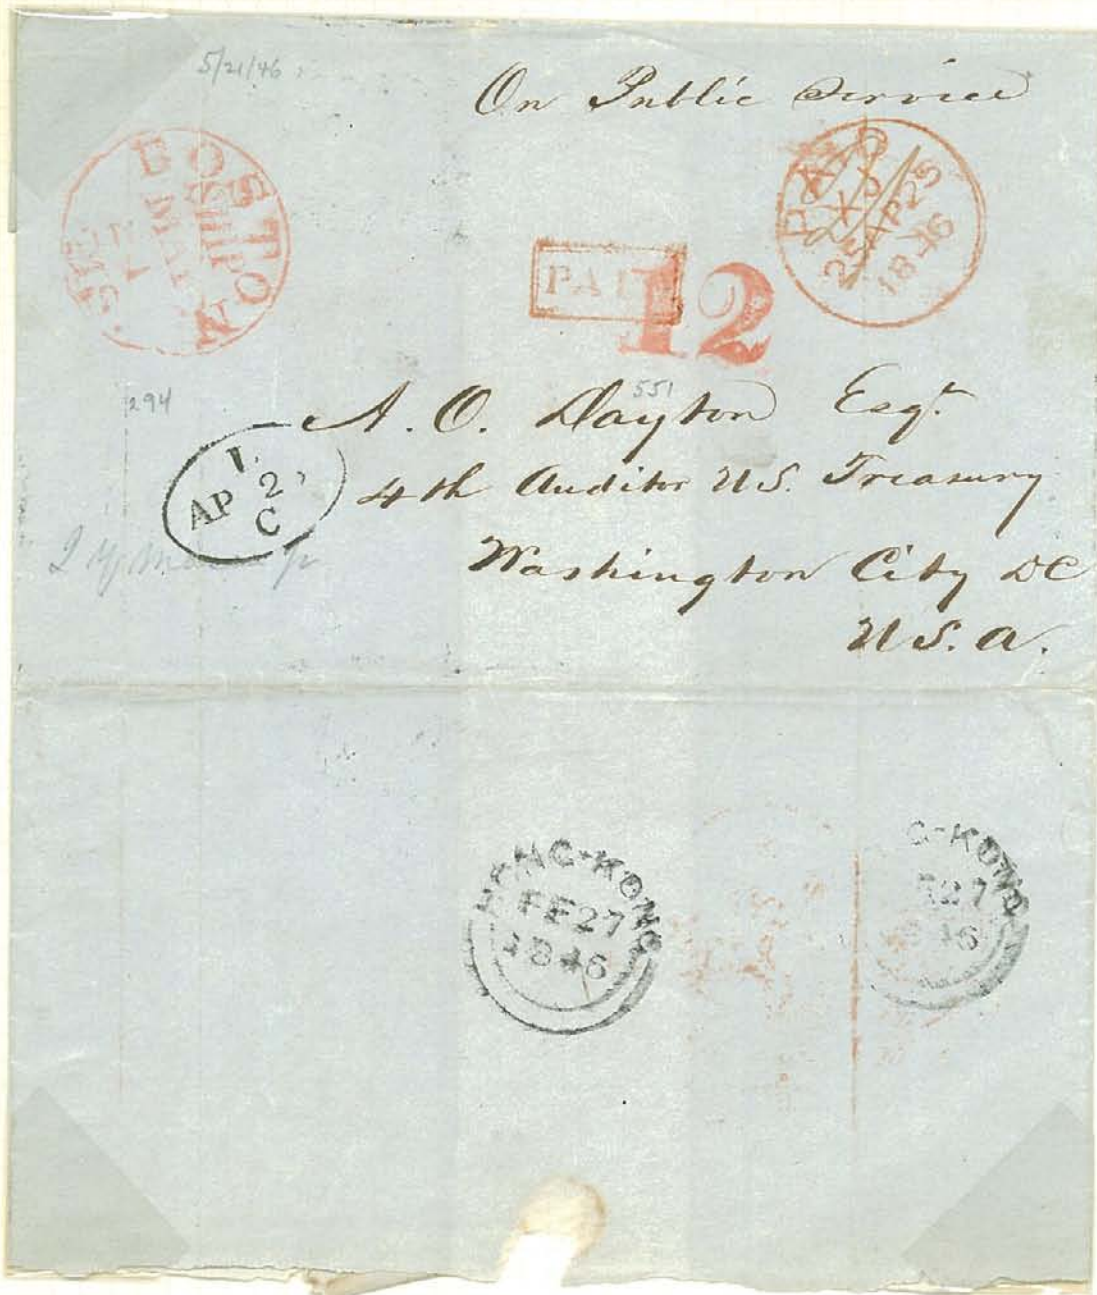 5/21/46
On Public Service
BOSTON
SHIP
MAY
PAID
25 AP 25
1846
PAID
12
294
551
A. O. Dayton Esqr.
4th Auditor U.S. Treasury
AP 2
C
Washington City DC
U.S.A.
HONG-KONG
FE 27
1846
G-KONG
27
46